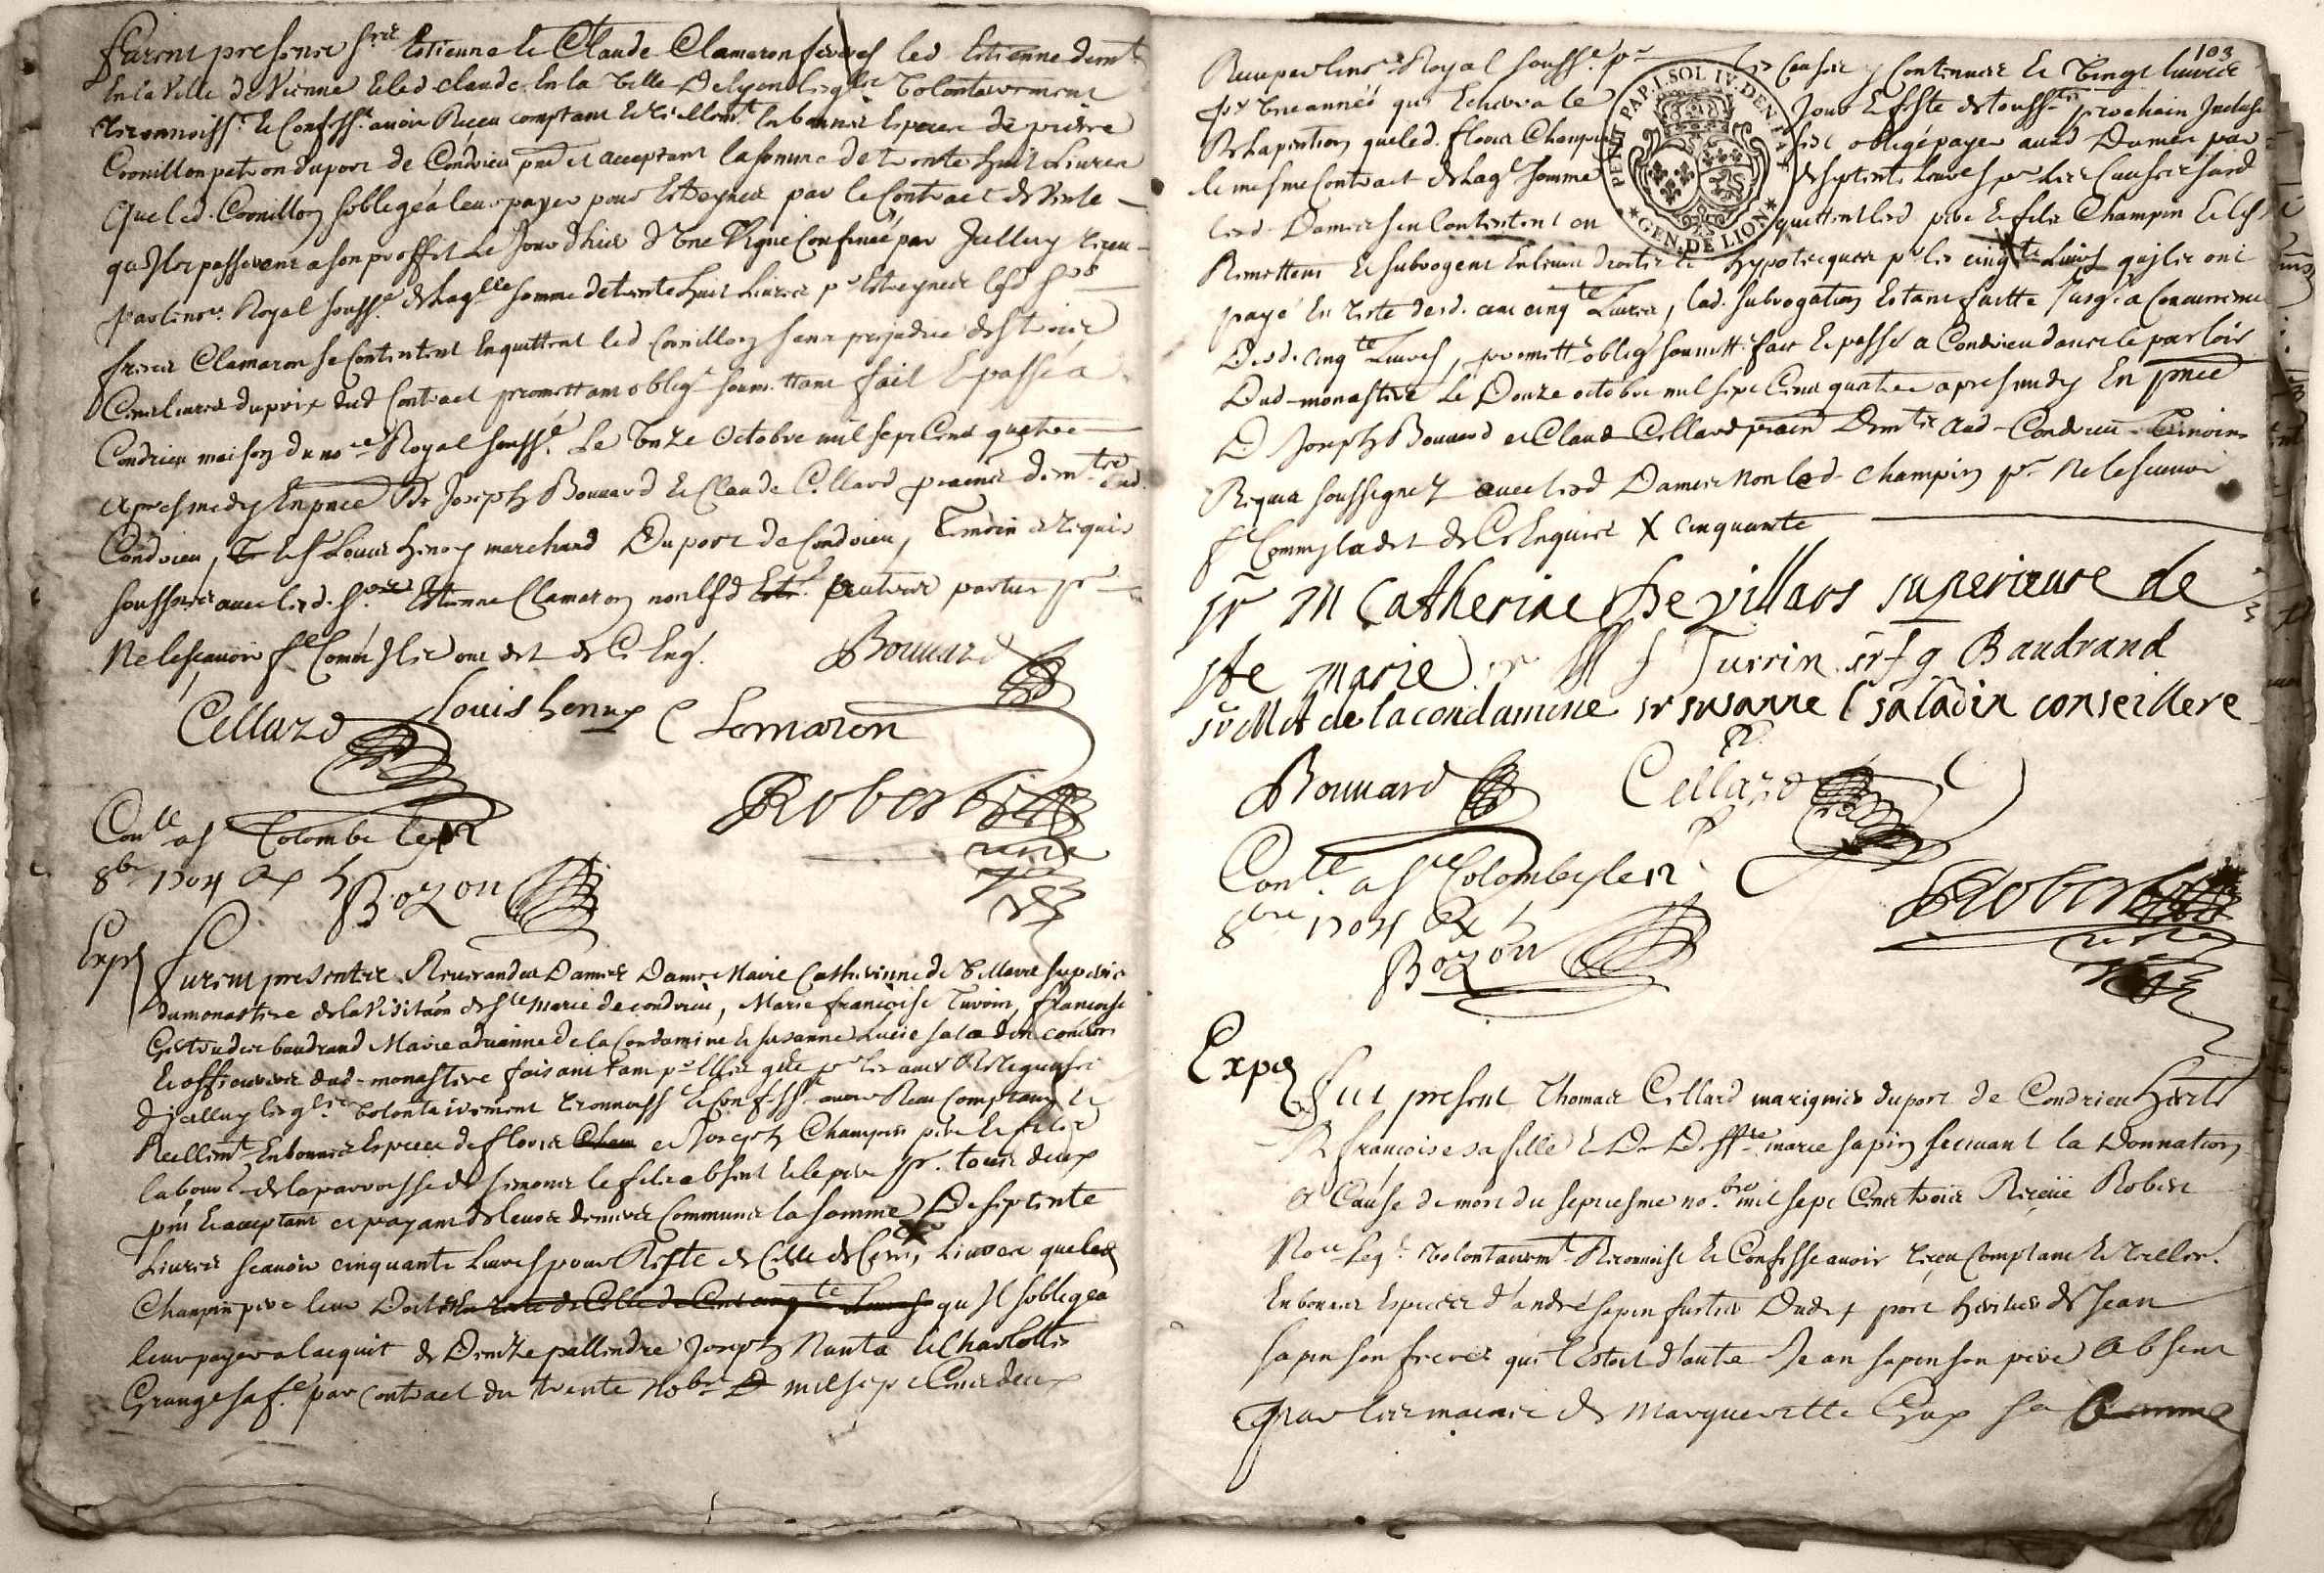 Furent presents srs Estienne & Claude Clamaron freres led. Estienne demt
En la Ville de Vienne & led claude En la Ville De lyon lesqls Volontairement
reconnoisst & Confesst avoir Receu comptant & reellemt En bonnes Especes de pierre
Cornillon patron du port de Condrieu pnt et acceptant la somme de trente huit Livres
Que led. Cornillon soblegea leur payer pour Estreynes par le Contract de Vente
quils passerent a son proffit Le Jour dhier dUne Vigne Confinée par Jcelluy receu
par le nore Royal soussé de laqlle somme de trente huit Livres pr Estreynes lesd srs
freres Clamaron se Contentent En quittent led Cornillon sans prejudice des trois
Cens livres du prix dud Contract promettant obligt soumettant fait & passé a
Condrieu maison du nore Royal soussé Le Unze Octobre mil sept Cens quatre
apres midy En pnce De Joseph Bouvard & Claude Cellard praciens demts aud.
Condrieu, & le sr Louis henry marchand Du port de Condrieu, Temoins & requis
soussnes avec led. sr Estienne Clamaron non lesd autres parties pr
Ne le scavoir se Comme Jls ont dit de Ce Enqs.
Bouvard
Cellard Louis henry C Lamaron
Conlle a ste Colombe le 12
8bre 1704
Bozon
Robert
nore
Exped Furent presentes Reverandes Dames Dame Marie Catherinne de Villars superieure
du monastere de la Visitaon de Ste Marie de condrieu, Marie francoise Turrin, francoise
Gertrude baudrand Marie adrianne de la Condamine & susanne Lucie saladin conseres
& officieres dud. monastere faisant tant pr Elles que pr les autres Religieuses
dJcelluy lesqles Volontairement reconnoisst & Confesst avoir Receu Comptant &
Reellemt En bonnes Especes de floris Cham et Joseph Champin pere & fils
labours de la parroisse de le fils absent & le pere pnt. tous deux
pnt & acceptant et payant de leurs deniers Communs la somme De septente
Livres scavoir cinquante Livres pour Reste de Celle de Cens, Livres que led
Champin pere leur Doit En reste de Celle de Cent cinqte Livres qu Jl soblegea
leur payer a lacquit de Denize pallindre Joseph Nanta & Charlotte
Grange sa fe. par contract du trente Nobre mil sept Cens deux
103
Receu par le nore Royal soussé. pr les Causes y Contenues & Vingt Livres
pr Une année qui Echerra le Jour & feste de toussts prochain Jncluse
De la pention que led. floris Champin sest obligé payer ausd Dames par
le mesme Contract De laqle somme de septente Livres pr les Causes susd
lesd. Dames se Contentent en quittent led pere & fils Champin & les
Remettent & subrogent En leurs droits & hypotecques pr les cinqte Livres quils ont
payé En reste desd. cent cinqte Livres, lad. subrogation Estant faitte Jusqs a Concurrence
Desd. cinqte Livres, promettt obligt soumettt fait & passé a Condrieu dans le parloir
Dud. monastere Le Douze octobre mil sept Cens quatre apres midy En pnce
De Joseph Bouvard et Claude Cellard praciens Demts aud. Condrieu Temoins
Requis soussignez avec lesd Dames non led. Champin pr Ne le scavoir
se Comme Jl a dit de Ce Enquis X cinquante
sr M Catherine De Villars superieure de
ste marie sr M f Turrin sr f g Baudrand
sr M A de la condamine sr susanne l saladin conseillere
Bouvard Cellard
Conlle. a ste Colombe le 12
8bre 1704
Bozon
Robert
nore
Exped Fut present Thomas Cellard marignier du port de Condrieu
De françoise sa fille & De Deffte marie sapin suivant la Donnation
a Cause de mort du septiesme nobre mil sept Cens trois Receüe Robert
Nore Leql Volontairemt Reconnoist & Confesse avoir receu Comptant & reellemt
En bonnes Especes d'andré sapin fustier Dudt port heritier de Jean
sapin son frere qui l'Estoit d'autre Jean sapin son pere Absent
par les mains de Marguerite Gay sa femme